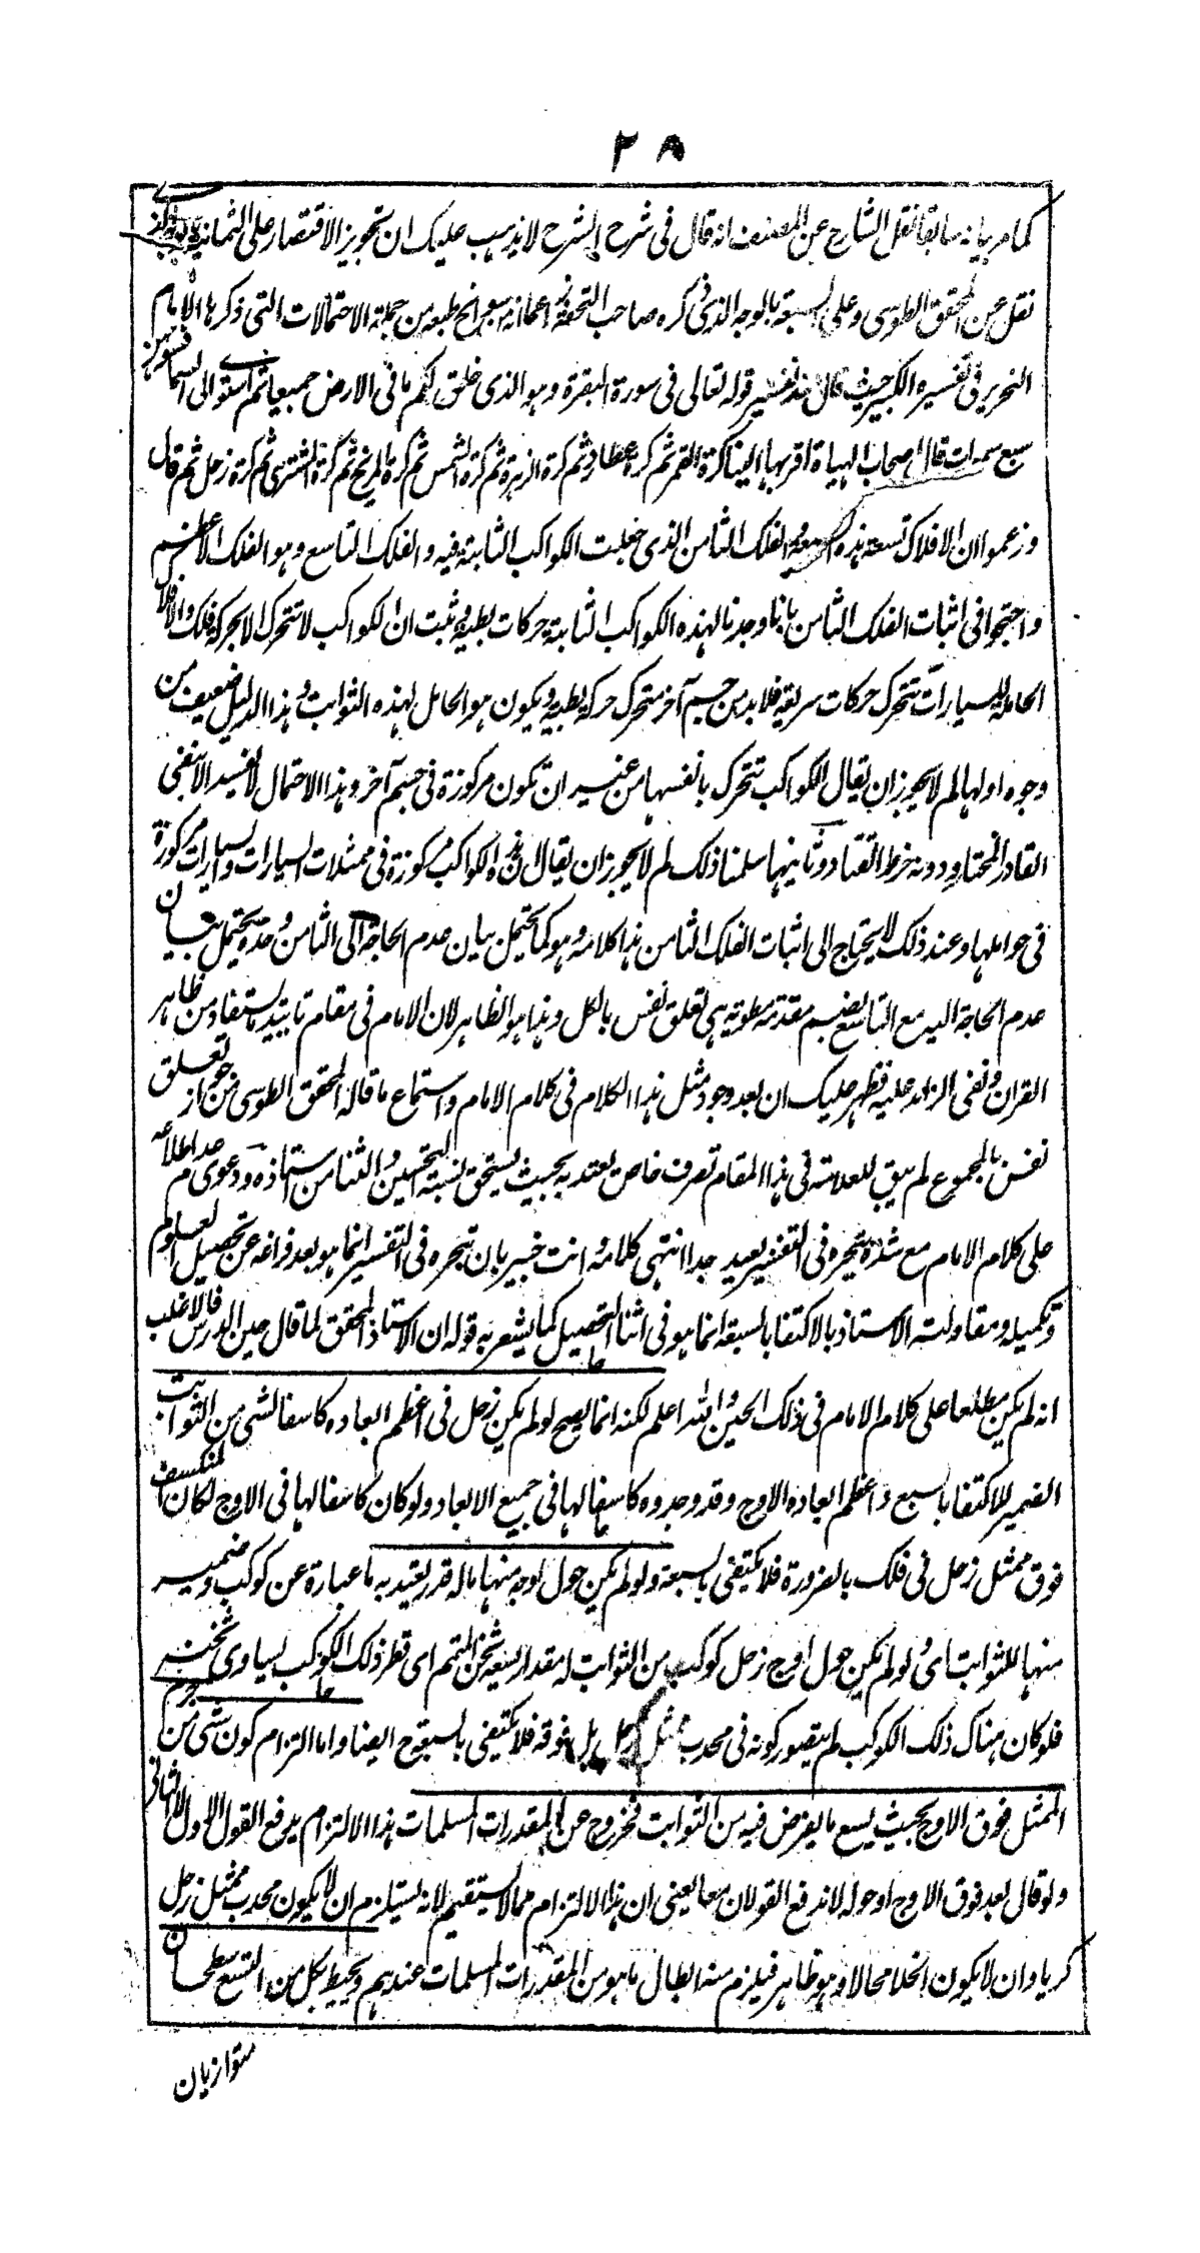 ٢٨
كما مر بيانه سابقا نقل الشارح عن المصنف انه قال فى شرح الشرح لا يذهب عليك ان تجويز الاقتصار على الثمانية
نقل عن المحقق الطوسى وعلى السبعة بالوجه الذى ذكره صاحب التحفة من جملة الاحتمالات التى ذكرها الامام
النحرير فى تفسيره الكبير حيث قال عند تفسير قوله تعالى فى سورة البقرة وهو الذى خلق لكم ما فى الارض جميعا ثم استوى الى السماء فسواهن
سبع سموات قال اصحاب الهياة اقربها الينا كرة القمر ثم كرة عطارد ثم كرة الزهرة ثم كرة الشمس ثم كرة المريخ ثم كرة المشترى ثم كرة زحل ثم قال
وزعموا ان الافلاك تسعة هذه السبعة والفلك الثامن الذى جعلت الكواكب الثابتة فيه والفلك التاسع وهو الفلك الاعظم
واحتجوا فى اثبات الفلك الثامن بانا وجدنا لهذه الكواكب الثابتة حركات بطيئة وثبت ان الكواكب لا تتحرك الا بحركة فلك والافلاك
الحاملة للسيارات تتحرك حركات سريعة فلا بد من جسم آخر متحرك حركة بطيئة ويكون هو الحامل لهذه الثوابت وهذا الدليل ضعيف من
وجوه اولها لم لا يجوز ان يقال الكواكب تتحرك بانفسها من غير ان تكون مركوزة فى جسم آخر وهذا الاحتمال لا يفسد الا بنفى
القادر المختار ودونه خرط القتاد وثانيها سلمنا ذلك لم لا يجوز ان يقال ان هذه الكواكب مركوزة فى ممثلات السيارات والسيارات مركوزة
فى حواملها وعند ذلك لا يحتاج الى اثبات الفلك الثامن هذا كلامه وهو كما يحتمل بيان عدم الحاجة الى الثامن وحده يحتمل بيان
عدم الحاجة اليه مع التاسع بضم مقدمة مطوية هى تعلق نفس بالكل وهذا هو الظاهر لان الامام فى مقام تاييد ما يستفاد من ظاهر
القران ونفى الزائد عليه فظهر عليك ان بعد وجود مثل هذا الكلام فى كلام الامام واستماع ما قاله المحقق الطوسى من جواز تعلق
نفس بالمجموع لم يبق للعلامة فى هذا المقام تصرف خاص يعتد به بحيث يستحق نسبة التحسين والثنا من استاذه ودعوى عدم اطلاعه
على كلام الامام مع شدة تبحره فى التفسير بعيد جدا انتهى كلامه وانت خبير بان تبحره فى التفسير انما هو بعد فراغه عن تحصيل العلوم
وتكميله ومقاولته الاستاذ بالاكتفا بالسبعة انما هو فى اثناء التحصيل كما يشعر به قوله ان الاستاذ المحقق لما قال حين الدرس فالاغلب
انه لم يكن مطلعا على كلام الامام فى ذلك الحين والله اعلم لكنه انما يصح لو لم يكن زحل فى اعظم ابعاده كاسفا لشى من الثوابت
الضمير للاكتفا بالسبع واعظم ابعاده الاوج وقد وجدوه كاسفا لها فى جميع الابعاد ولو كان كاسفا لها فى الاوج لكان المنكسف
فوق ممثل زحل فى فلك بالضرورة فلا يكتفى بالسبعة ولو لم يكن حول اوجه منها ما له قدر يعتد به ما عبارة عن كوكب وضمير
منها للثوابت اى ولو لم يكن حول اوج زحل كوكب من الثوابت له مقدار يسعه ثخن المتمم اى قطر ذلك الكوكب يساوى ثخنه
فلو كان هناك ذلك الكوكب لم يتصور كونه فى محدب ممثل زحل بل فوقه فلا يكتفى بالسبعة ح ايضا واما التزام كون شى من جرم
الممثل فوق الاوج بحيث يسع ما يفرض فيه من الثوابت فخروج عن المقدرات المسلمات هذا الالتزام يدفع القول الاول لا الثانى
ولو قال بعد فوق الاوج او حوله لاندفع القولان معا يعنى ان هذا الالتزام مما لا يستقيم لانه يستلزم ان لا يكون محدب ممثل زحل
كريا وان لا يكون الخلا محالا وهو ظاهر فيلزم منه ابطال ما هو من المقدرات المسلمات عندهم ويحيط بكل من التسع سطحان
متوازيان